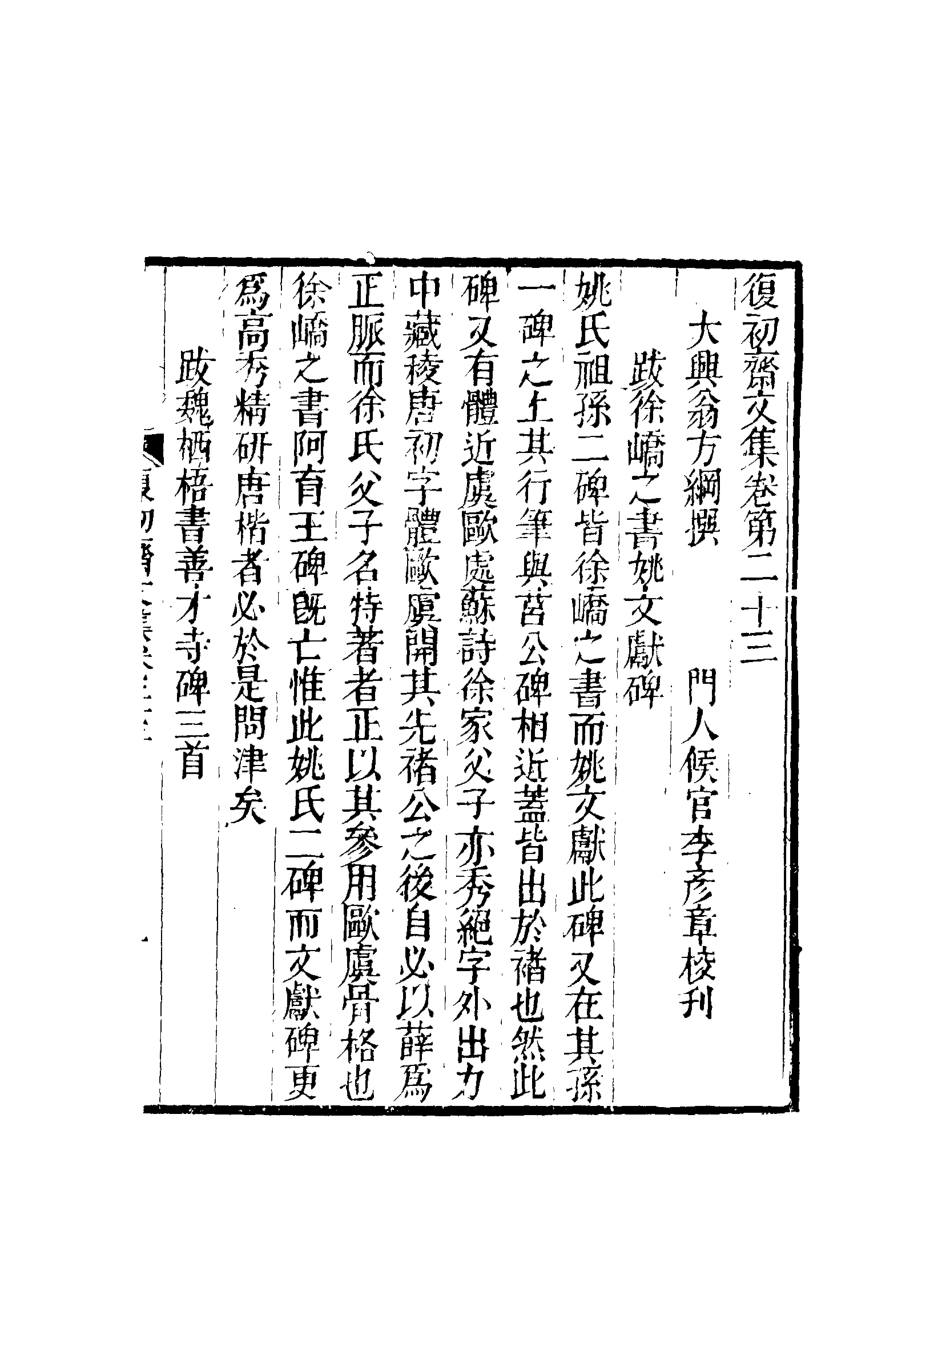 復初齋文集卷第二十三
大興翁方綱撰　門人候官李彥章校刊
跋徐嶠之書姚文獻碑
姚氏祖孫二碑皆徐嶠之書而姚文獻此碑又在其孫
一碑之上其行筆與莒公碑相近蓋皆出於褚也然此
碑又有體近虞歐處蘇詩徐家父子亦秀絕字外出力
中藏稜唐初字體歐虞開其先褚公之後自必以薛爲
正脈而徐氏父子名特著者正以其參用歐虞骨格也
徐嶠之書阿育王碑旣亡惟此姚氏二碑而文獻碑更
爲高秀精研唐楷者必於是問津矣
跋魏栖梧書善才寺碑三首